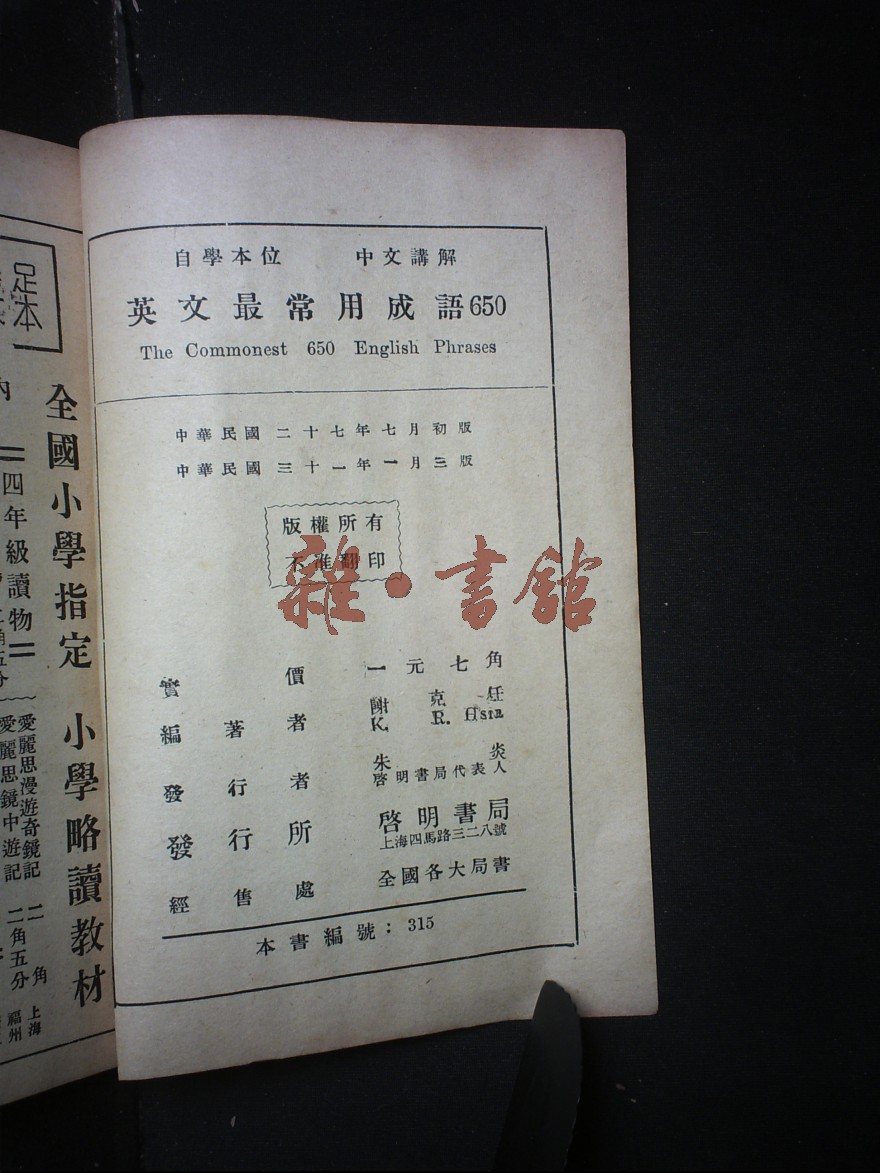 自學本位 中文講解
英文最常用成語650
The Commonest 650 English Phrases
中華民國二十七年七月初版
中華民國三十一年一月三版
版權所有
不准翻印
雜·書館
實價 一元七角
編著者 謝克任
K. R. Hsin
發行者 朱炎
啓明書局代表人
發行所 啓明書局
上海四馬路三二八號
經售處 全國各大局書
本書編號：315
足本
全國小學指定 小學略讀教材
四年級讀物
愛麗思漫遊奇鏡記 二角
愛麗思鏡中遊記 二角五分
上海
福州